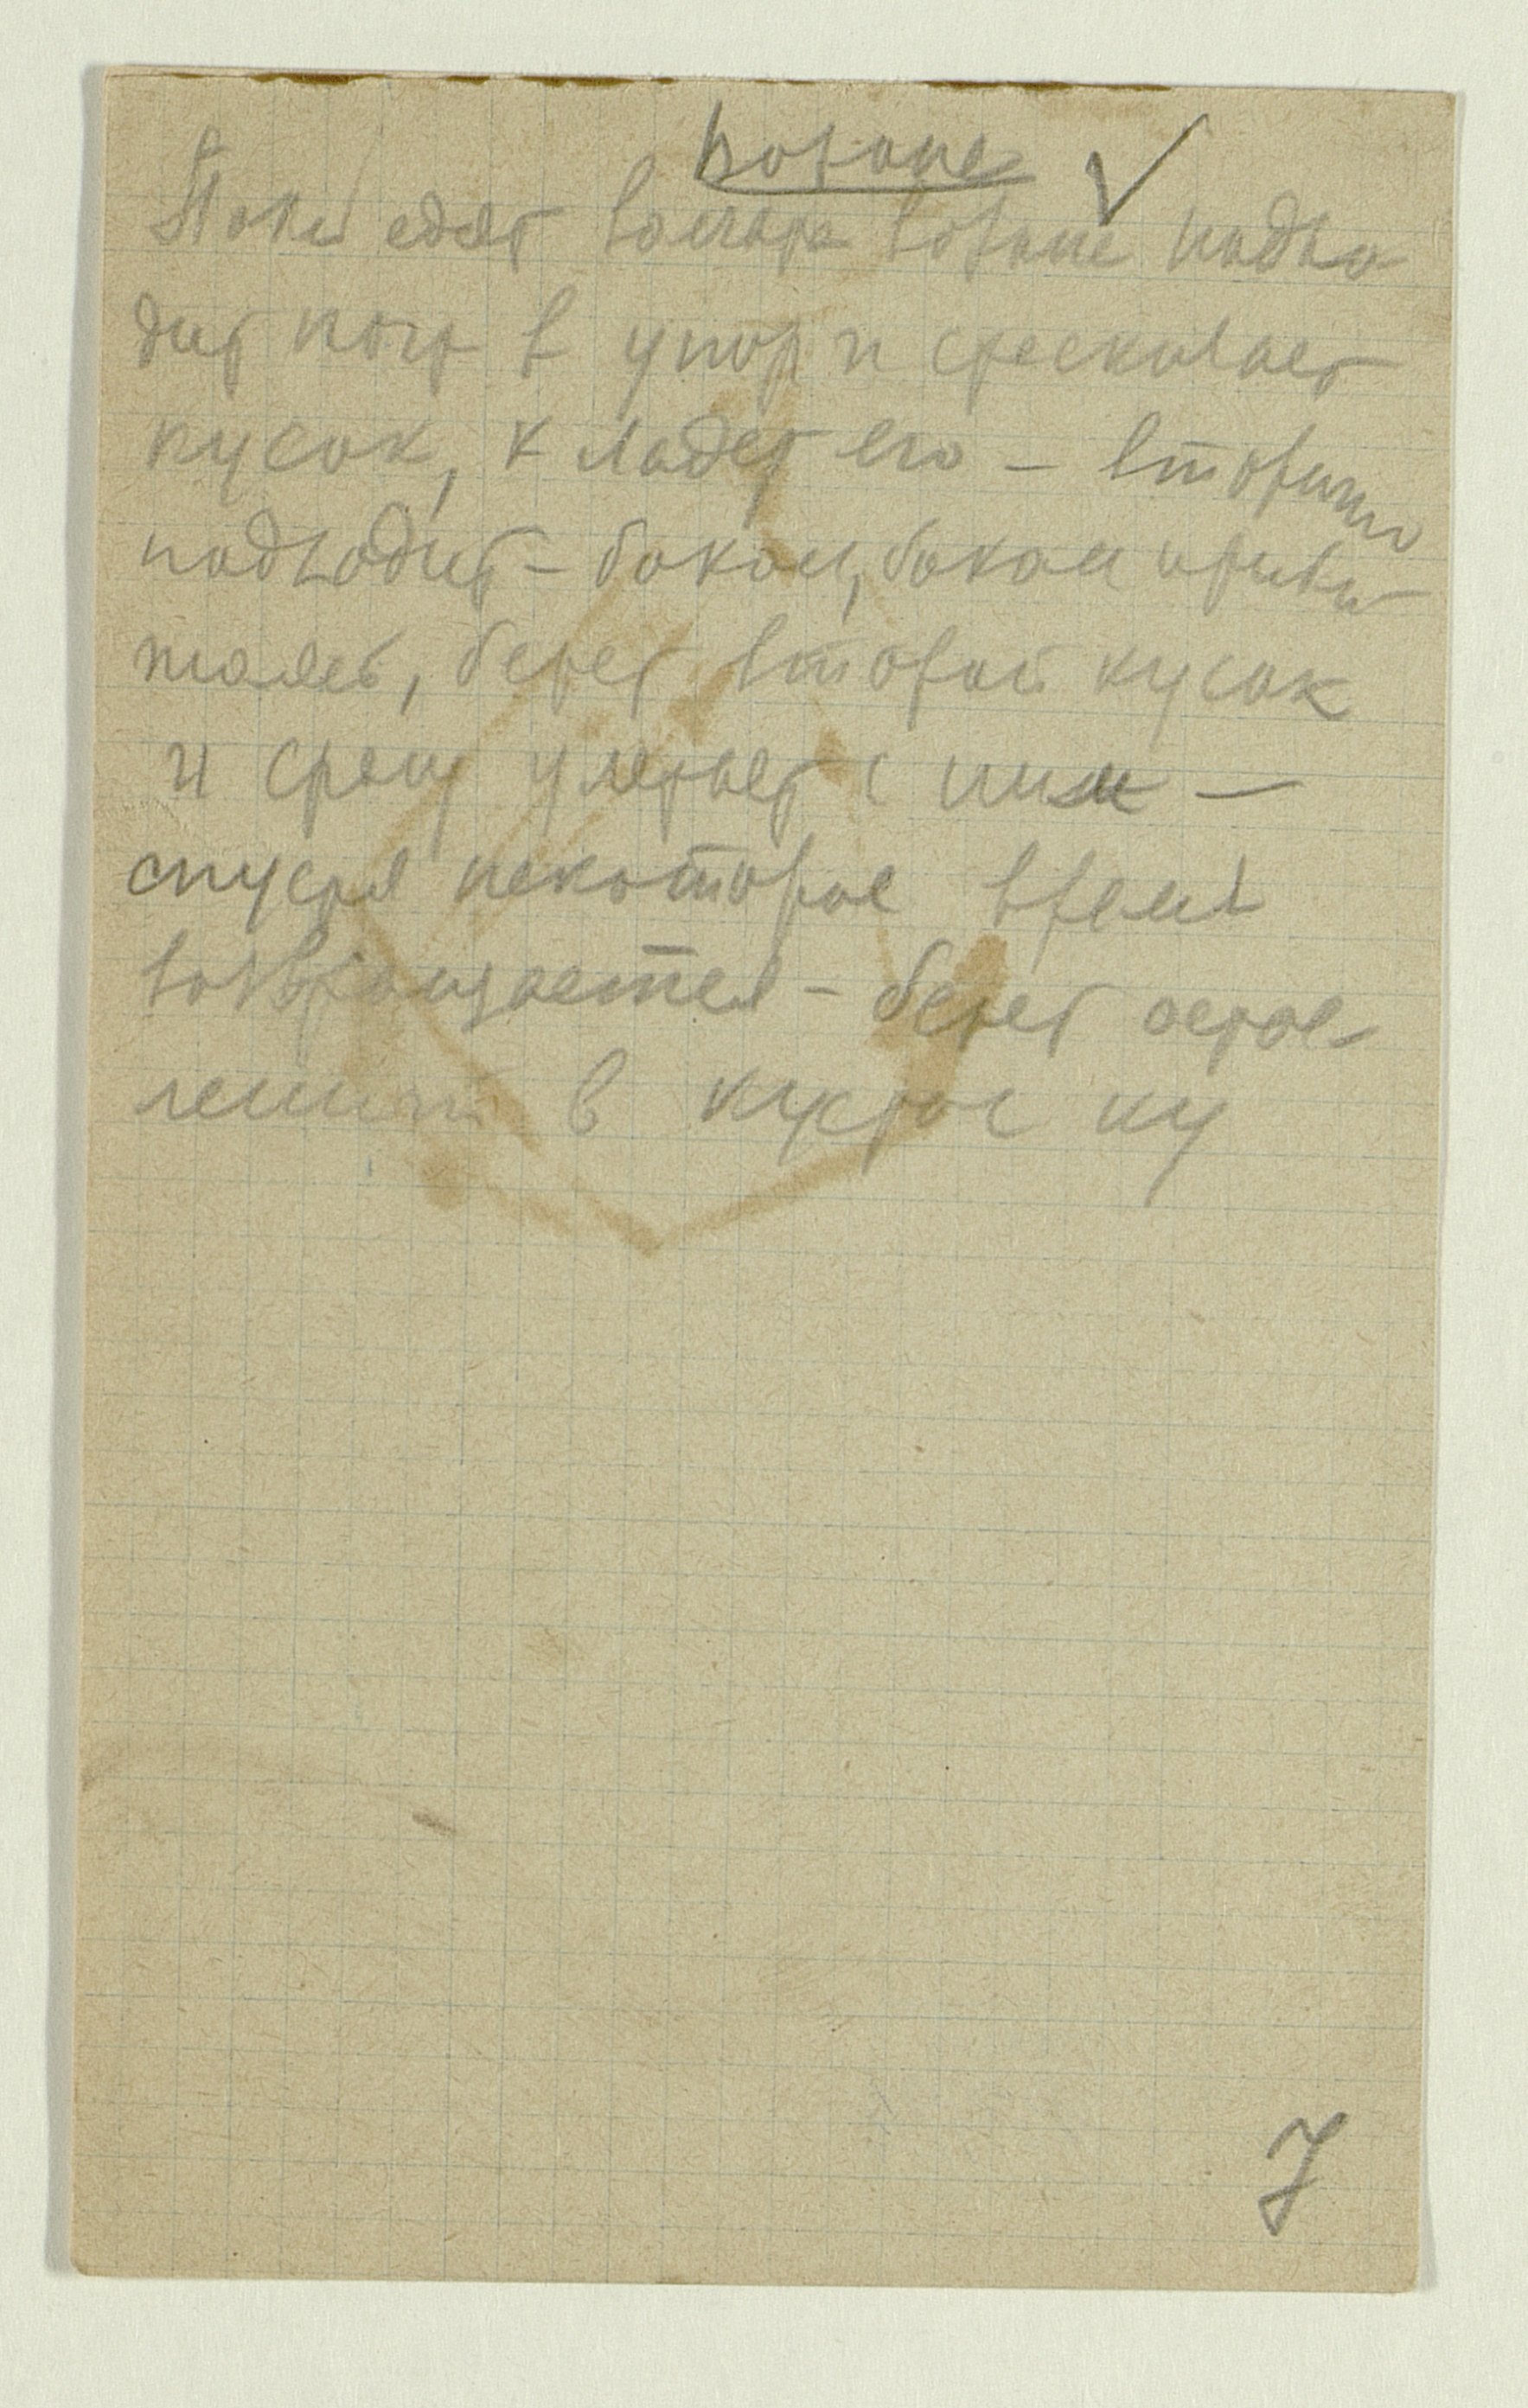 Воронье ✓
Пока едят волчата воронье подхо
дит почт в упор и стаскивает
кусок, кладет его – вторично
подходит – боком, боком
берет второй кусок
и сразу улетает с ним —
спустя некоторое время
возвращается – берет остав
ленный в кустах ку
7